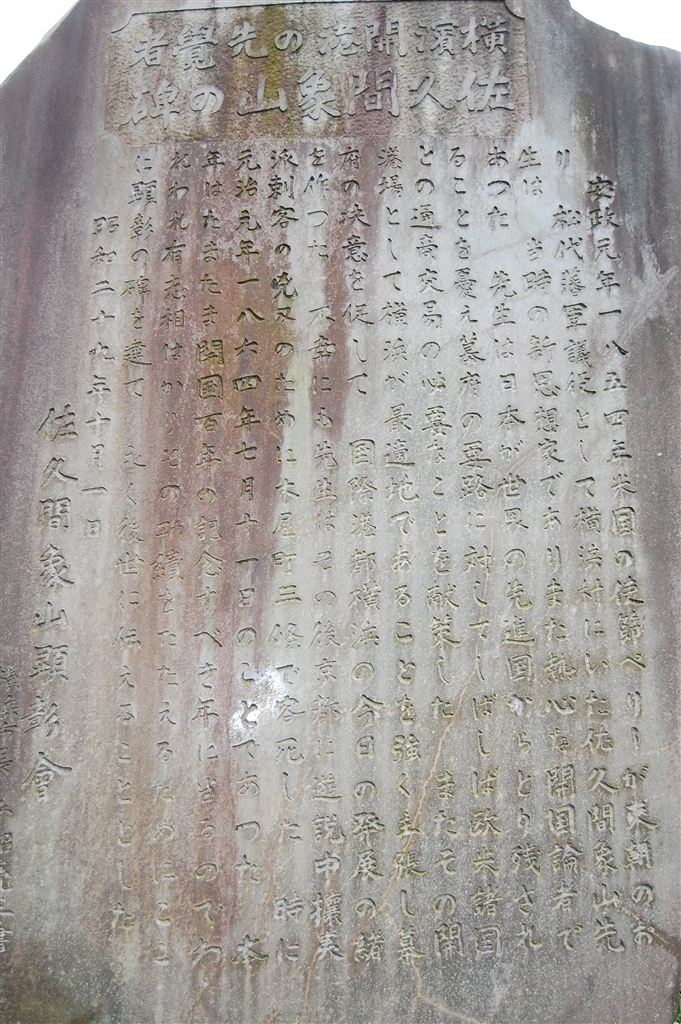 横濱開港の先覺者
佐久間象山の碑
安政元年一八五四年米国の使節ペリーが来朝のお
り 松代藩軍議役として横浜村にいた佐久間象山先
生は 当時の新思想家でありまた熱心な開国論者で
あつた 先生は日本が世界の先進国からとり残され
ることを憂え幕府の要路に対してしばしば欧米諸国
との通商交易の必要なことを献策した またその開
港場として横浜が最適地であることを強く主張し幕
府の決意を促して 国際港都横浜の今日の発展の緒
を作つた 不幸にも先生はその後京都に遊説中攘夷
派刺客の兇刃のために木屋町三條で客死した 時に
元治元年一八六四年七月十一日のことであつた 本
年はたまたま開国百年の記念すべき年に当るのでわ
れわれ有志相はかりその功績をたたえるためにここ
に顕彰の碑を建て 永く後世に伝えることとした
昭和二十九年十月一日
佐久間象山顕彰會